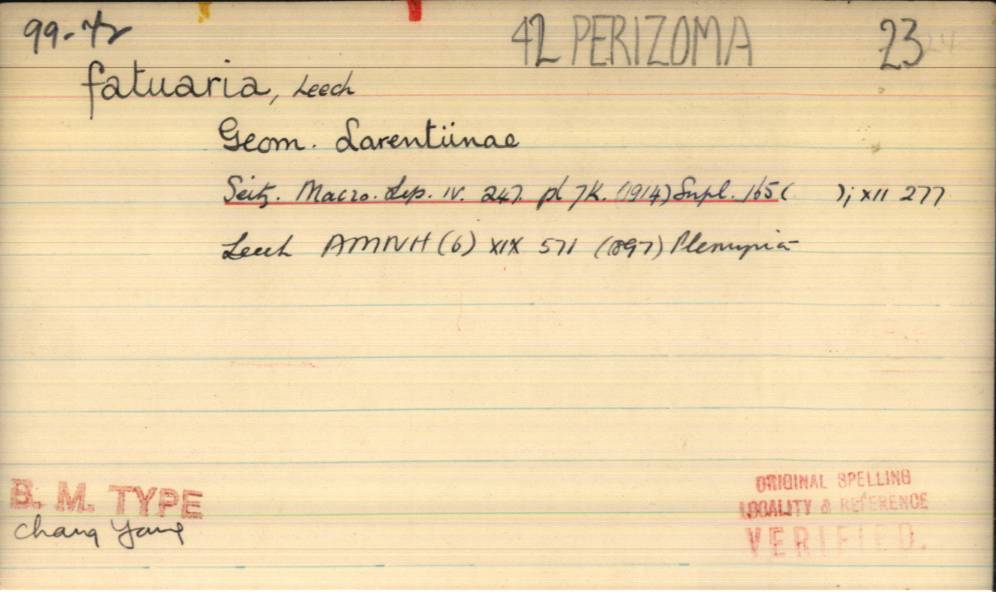 99-72 42 PERIZOMA 23 24
fatuaria, Leech
Geom. Larentiinae
Seitz. Macro. Lep. IV. 247. pl 7k. (1914) Supl. 165 ( ); XII 277
Leech AMNH (6) XIX 571 (1897)
B. M. TYPE
Chang Yang
ORIGINAL SPELLING
LOCALITY & REFERENCE
VERIFIED.